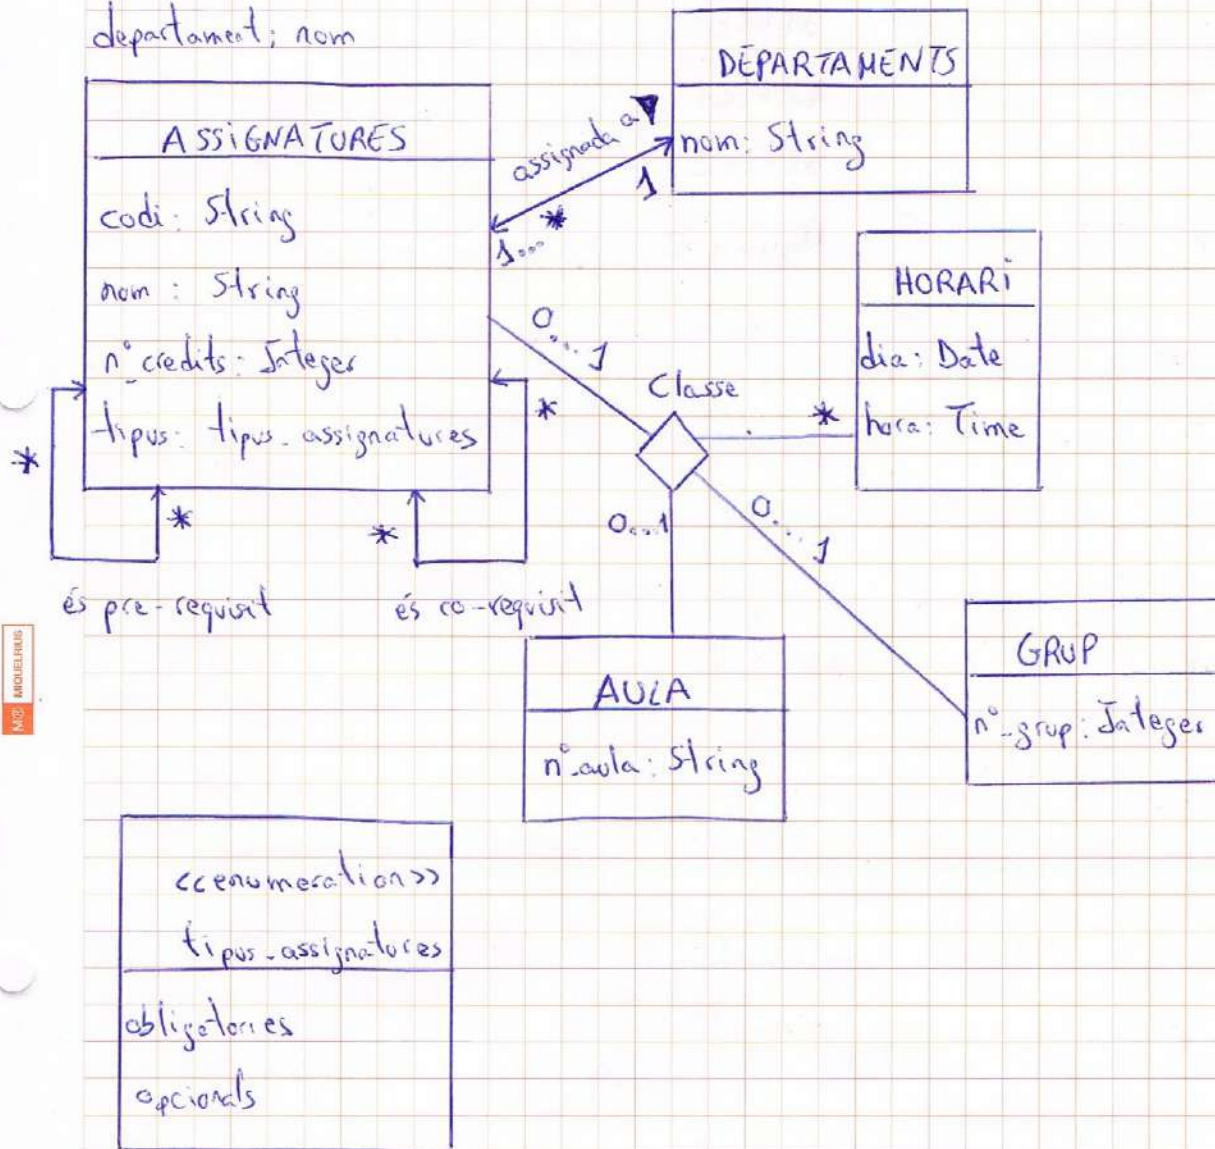 departament; nom
DEPARTAMENTS
nom: String
ASSIGNATURES
codi: String
nom: String
nº_credits: Integer
tipus: tipus_assignatures
assignada a
1
1...*
HORARI
dia: Date
hora: Time
0...1
Classe
*
*
*
*
*
0...1
0...1
és pre-requisit
és co-requisit
AULA
nº_aula: String
GRUP
nº_grup: Integer
MIQUELRIUS
<<enumeration>>
tipus_assignatures
obligatories
opcionals